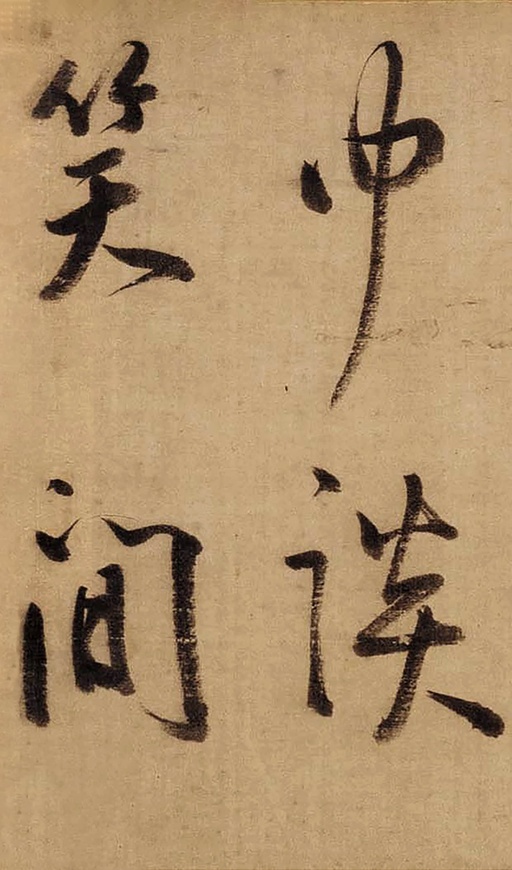 中談
笑間